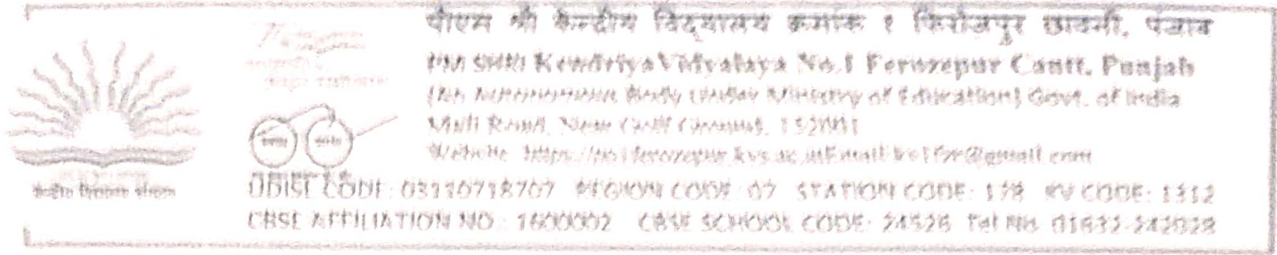 पीएम श्री केन्द्रीय विद्यालय क्रमांक १ फिरोजपुर छावनी, पंजाब
PM SHRI Kendriya Vidyalaya No.1 Ferozepur Cantt. Punjab
(An Autonomous Body Under Ministry of Education) Govt. of India
Mall Road, Near Cantt 152001
Website: https://no1ferozepur.kvs.ac.in
केन्द्रीय विद्यालय संगठन
UDISE CODE: 03110718707 REGION CODE: 07 STATION CODE: 178 KV CODE: 1312
CBSE AFFILIATION NO.: 1600002 CBSE SCHOOL CODE: 24526 Tel No. 01632-242028